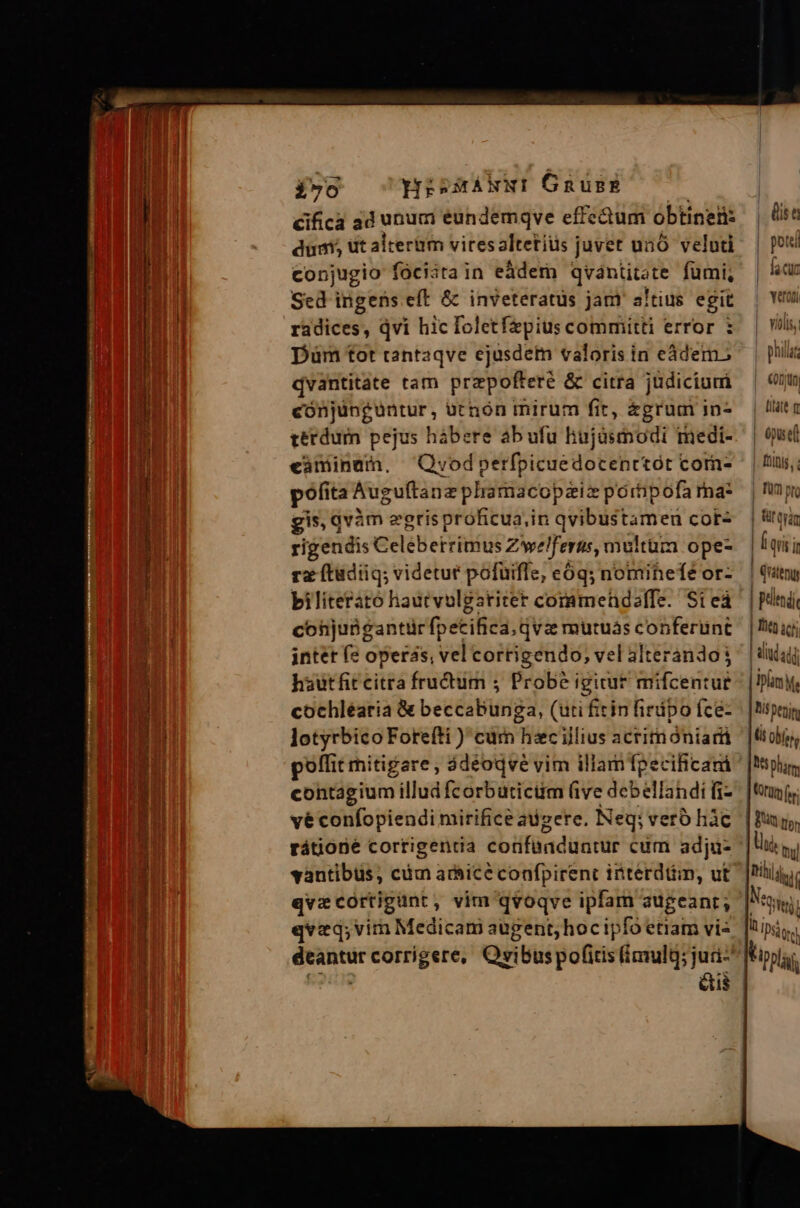 170 HERMANNI GRUBE
cifica ad unum eundemqve effectum obtinen-
dum, ut alterum vires alterius juvet unò veluti
conjugio sociata in eâdem qvantitate sumi,
Sed ingens est & inveteratus jam altius egit
radices, qvi hic solet sæpius committi error :
Dum tot tantaqve ejusdem valoris in eâdem
qvantitate tam præposterè & citra judicium
conjunguntur, ut non mirum sit, ægrum in-
terdum pejus habere ab usu hujusmodi medi-
caminum. Qvod perspicue docent tot com-
posita Augustanæ pharmacopæiæ pomposa ma-
gis, qvàm ægris proficua, in qvibus tamen cor-
rigendis Celeberrimus Zwelferus, multum ope-
ræ studiiq; videtur posuisse, eòq; nomine se or-
bi literato haut vulgariter commendasse. Si ea
conjungantur specifica, qvæ mutuas conferunt
inter se operas, vel corrigendo, vel alterando;
haut fit citra fructum ; Probè igitur miscentur
cochlearia & beccabunga, (uti fit in sirupo sce-
lotyrbico Foresti) cùm hæc illius acrimoniam
possit mitigare, adeoqve vim illam specificam
contagium illud scorbuticum sive debellandi si-
ve consopiendi mirificè augere. Neq; verò hâc
ratione corrigentia confunduntur cum adju-
vantibus, cùm amicè conspirent interdum, ut
qvæ corrigunt, vim qvoqve ipsam augeant,
qvæq; vim Medicam augent, hoc ipso etiam vi-
deantur corrigere, Qvibus positis simulq; jun-
ctis